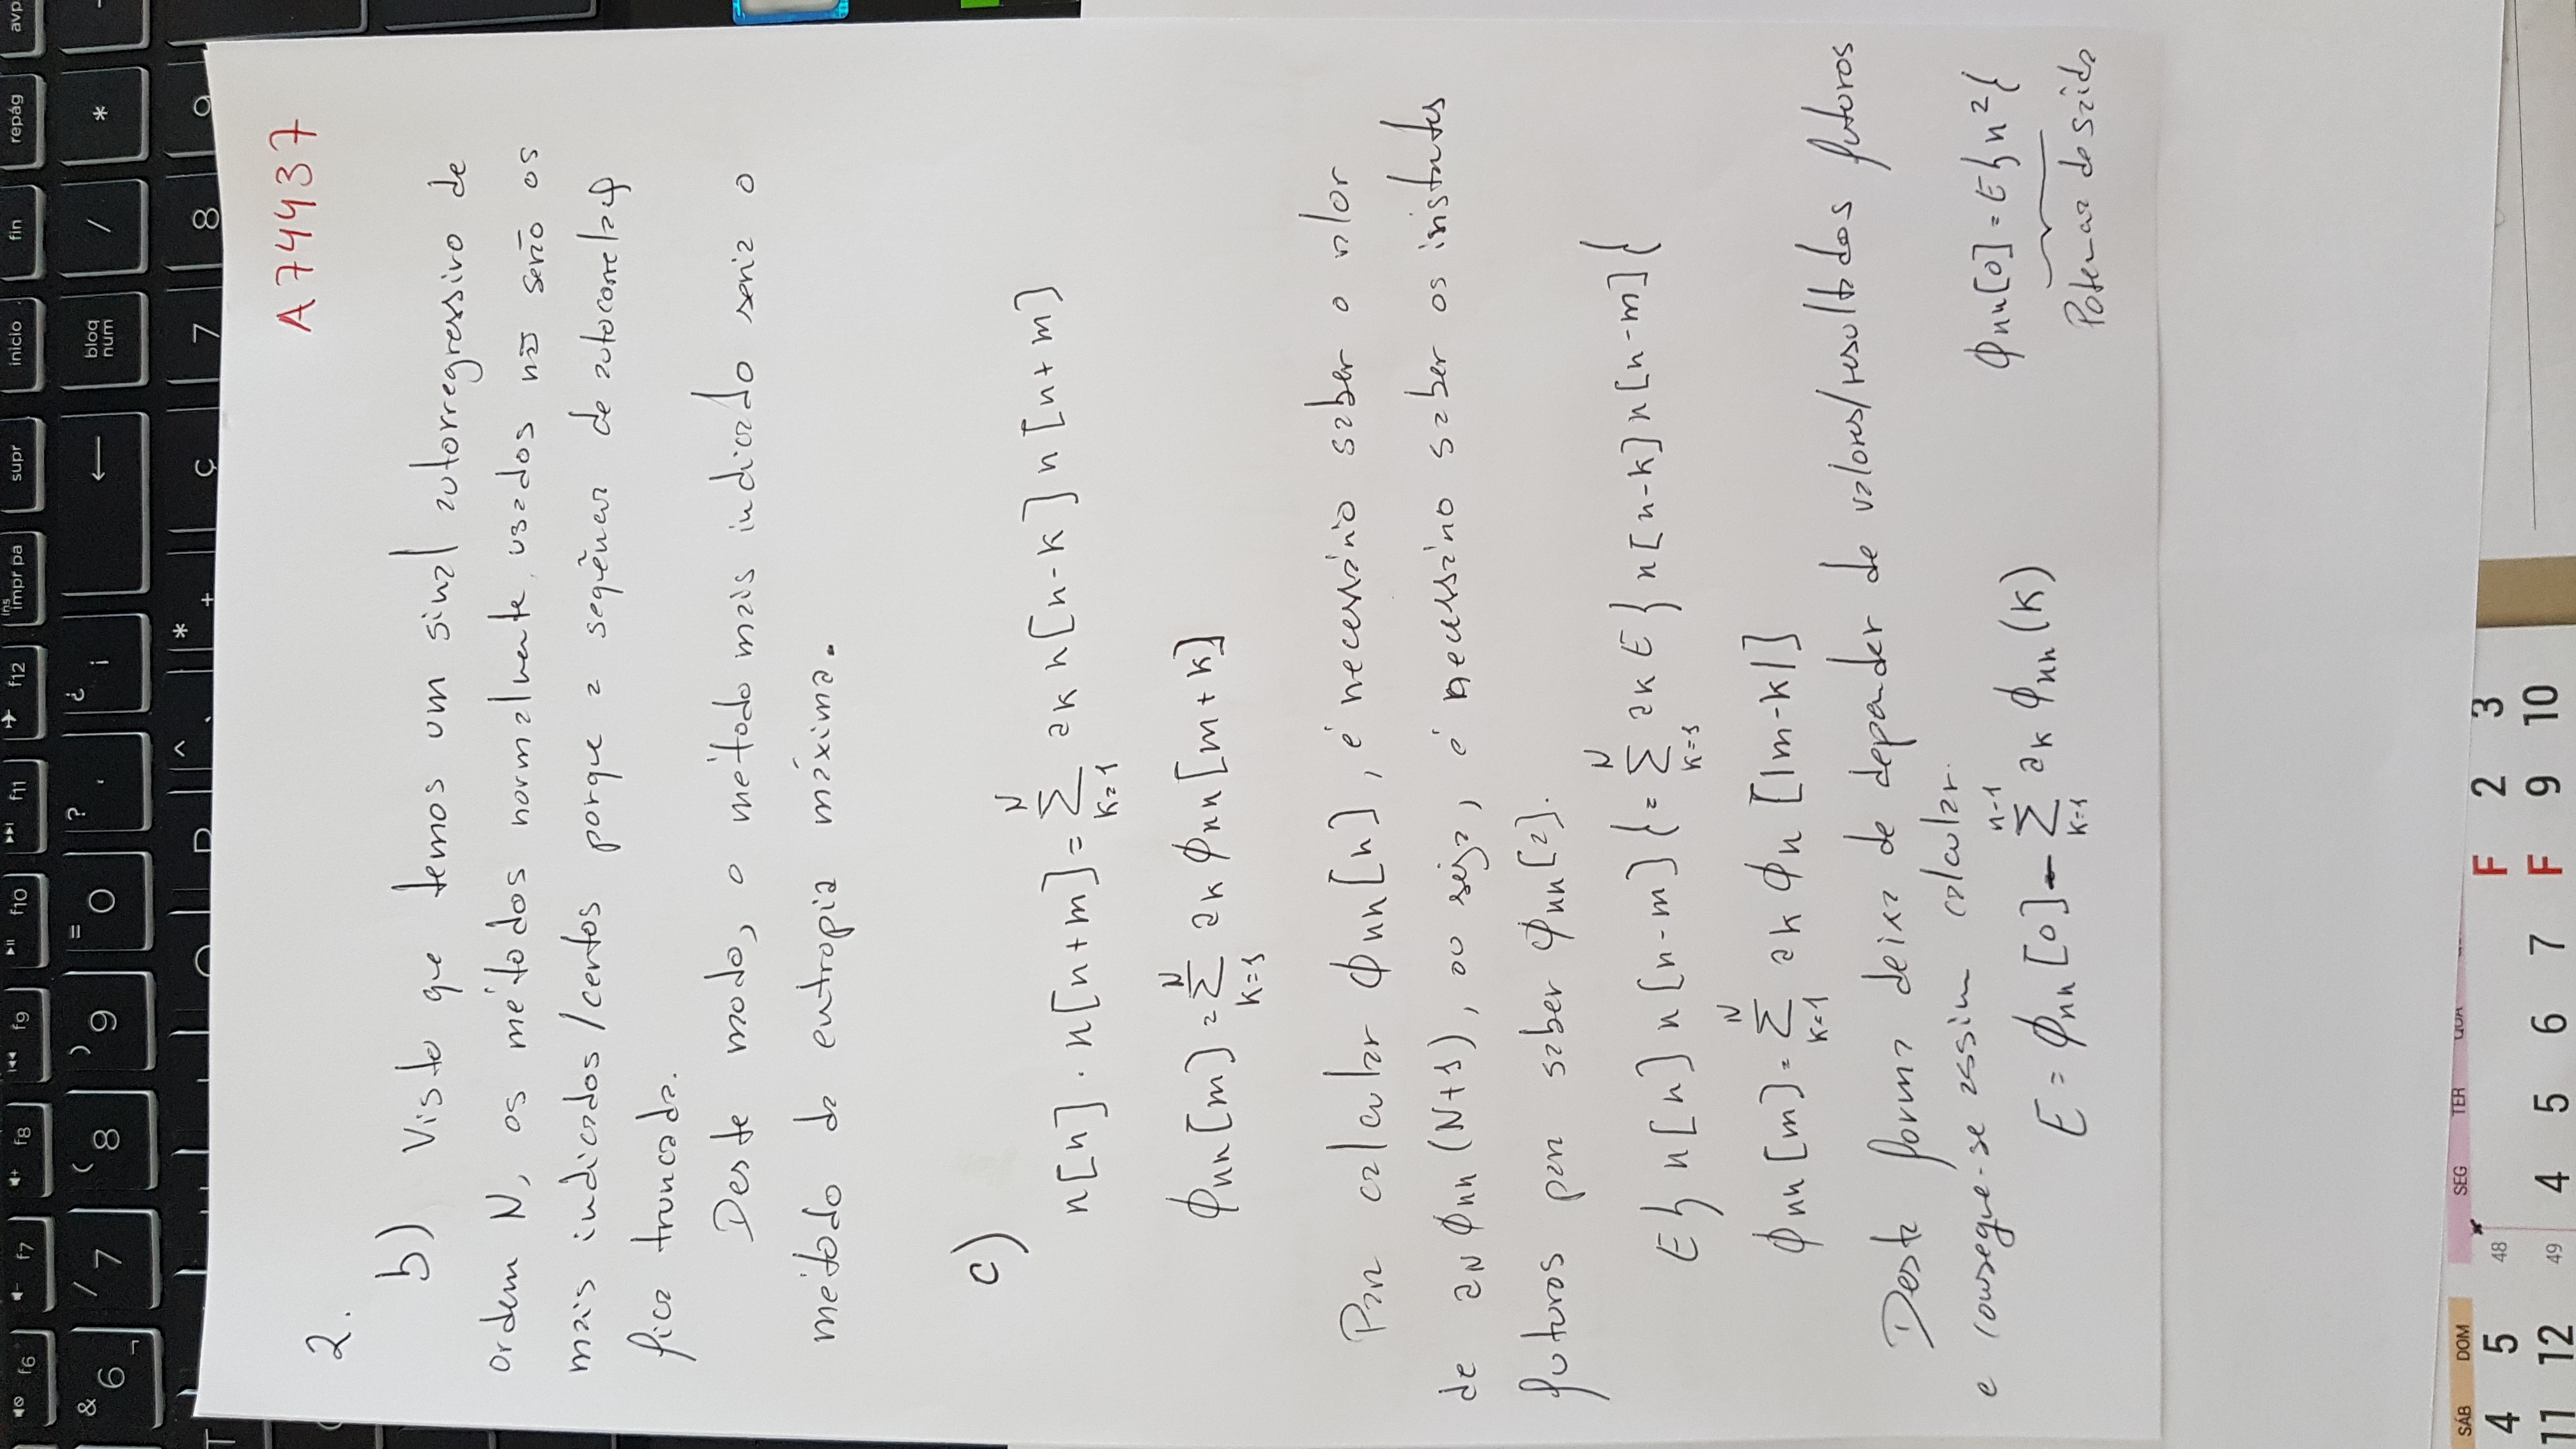 f6 f7 f8 f9 f10 f11 f12 ins impr pa supr inicio fin repág avp
& 6 ¬ / 7 ( 8 ) 9 = 0 ? ' ¿ ¡ ← bloq num / *
^ * + ç 7 8 9
A74437
2.
b) Visto que temos um sinal autorregressivo de
ordem N, os métodos normalmente usados não serão os
mais indicados/certos porque a
de
fica truncada.
Deste modo, o método mais indicado seria o
método da entropia máxima.
c)
n[n] . n[n+m] = N Σ k=1 ak n[n-k] n[n+m]
ϕnn[m] = N Σ k=1 ak ϕnn[m+k]
Para calcular ϕnn[n], é necessário saber o valor
de aN ϕnn(N+1), ou seja, é necessário saber os instantes
futuros para saber ϕnn[2].
E} n[n] n[n-m] { = N Σ k=1 ak E } n[n-k] n[n-m] {
ϕnn[m] = N Σ k=1 ak ϕn [|m-k|]
Desta forma deixa de depender de valores/resultados futuros
e consegue-se assim calcular.
E = ϕnn[0] - n-1 Σ k=1 ak ϕnn(k)
ϕnn[0] = E} n² {
Potencia de saída
SÁB DOM SEG TER QUA
4 5 48 F 2 3
11 12 49 4 5 6 7 F 9 10